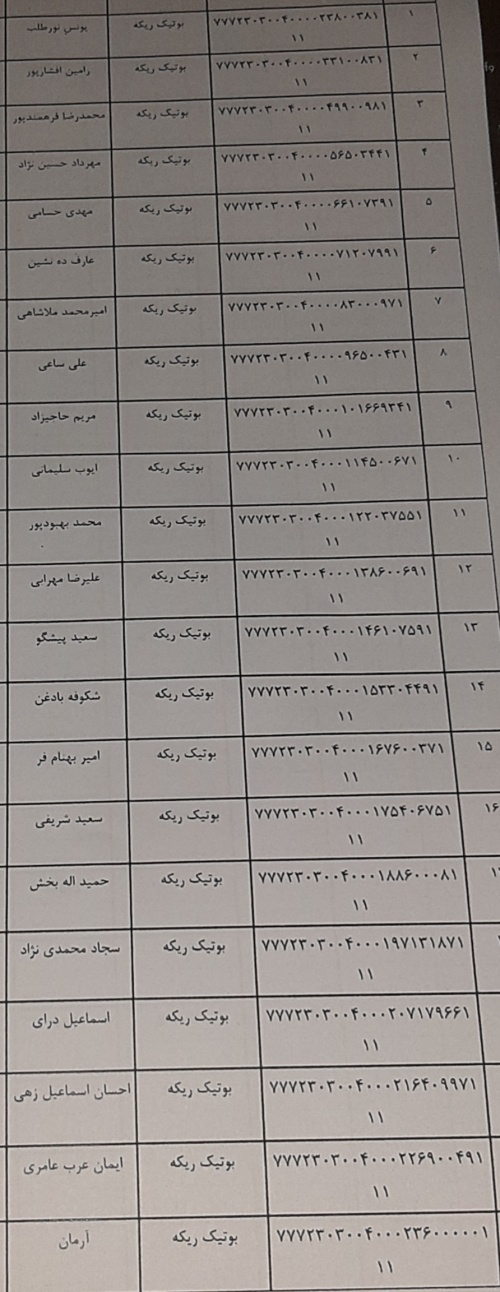 ۱ ۷۷۷۲۳۰۳۰۰۴۰۰۰۰۲۳۸۰۰۳۸۱ بوتیک ریکه یونس نورطلب
۱۱
۲ ۷۷۷۲۳۰۳۰۰۴۰۰۰۰۳۳۱۰۰۸۳۱ بوتیک ریکه رامین افشارپور
۱۱
۳ ۷۷۷۲۳۰۳۰۰۴۰۰۰۰۴۹۹۰۰۹۸۱ بوتیک ریکه محمدرضا فرهمندپور
۱۱
۴ ۷۷۷۲۳۰۳۰۰۴۰۰۰۰۵۶۵۰۳۴۴۱ بوتیک ریکه مهرداد حسین نژاد
۱۱
۵ ۷۷۷۲۳۰۳۰۰۴۰۰۰۰۶۶۱۰۷۳۹۱ بوتیک ریکه مهدی حسامی
۱۱
۶ ۷۷۷۲۳۰۳۰۰۴۰۰۰۰۷۱۲۰۷۹۹۱ بوتیک ریکه عارف ده نشین
۱۱
۷ ۷۷۷۲۳۰۳۰۰۴۰۰۰۰۸۳۰۰۰۹۷۱ بوتیک ریکه امیرمحمد ملاشاهی
۱۱
۸ ۷۷۷۲۳۰۳۰۰۴۰۰۰۰۹۶۵۰۰۴۳۱ بوتیک ریکه علی ساعی
۱۱
۹ ۷۷۷۲۳۰۳۰۰۴۰۰۰۱۰۱۶۶۹۳۴۱ بوتیک ریکه مریم حاجیزاد
۱۱
۱۰ ۷۷۷۲۳۰۳۰۰۴۰۰۰۱۱۴۵۰۰۶۷۱ بوتیک ریکه ایوب سلیمانی
۱۱
۱۱ ۷۷۷۲۳۰۳۰۰۴۰۰۰۱۲۲۰۳۷۵۵۱ بوتیک ریکه محمد بهبودپور
۱۱
۱۲ ۷۷۷۲۳۰۳۰۰۴۰۰۰۱۳۸۶۰۰۶۹۱ بوتیک ریکه علیرضا مهرابی
۱۱
۱۳ ۷۷۷۲۳۰۳۰۰۴۰۰۰۱۴۶۱۰۷۵۹۱ بوتیک ریکه سعید پیشگو
۱۱
۱۴ ۷۷۷۲۳۰۳۰۰۴۰۰۰۱۵۳۳۰۴۴۹۱ بوتیک ریکه شکوفه بادغن
۱۱
۱۵ ۷۷۷۲۳۰۳۰۰۴۰۰۰۱۶۷۶۰۰۳۷۱ بوتیک ریکه امیر بهنام فر
۱۱
۱۶ ۷۷۷۲۳۰۳۰۰۴۰۰۰۱۷۵۴۰۶۷۵۱ بوتیک ریکه سعید شریفی
۱۱
۷۷۷۲۳۰۳۰۰۴۰۰۰۱۸۸۶۰۰۰۸۱ بوتیک ریکه حمید اله بخش
۱۱
۷۷۷۲۳۰۳۰۰۴۰۰۰۱۹۷۱۳۱۸۷۱ بوتیک ریکه سجاد محمدی نژاد
۱۱
۷۷۷۲۳۰۳۰۰۴۰۰۰۲۰۷۱۷۹۶۶۱ بوتیک ریکه اسماعیل درای
۱۱
۷۷۷۲۳۰۳۰۰۴۰۰۰۲۱۶۴۰۹۹۷۱ بوتیک ریکه احسان اسماعیل زهی
۱۱
۷۷۷۲۳۰۳۰۰۴۰۰۰۲۲۶۹۰۰۴۹۱ بوتیک ریکه ایمان عرب عامری
۱۱
۷۷۷۲۳۰۳۰۰۴۰۰۰۲۳۶۰۰۰۰۰۱ بوتیک ریکه آرمان
۱۱